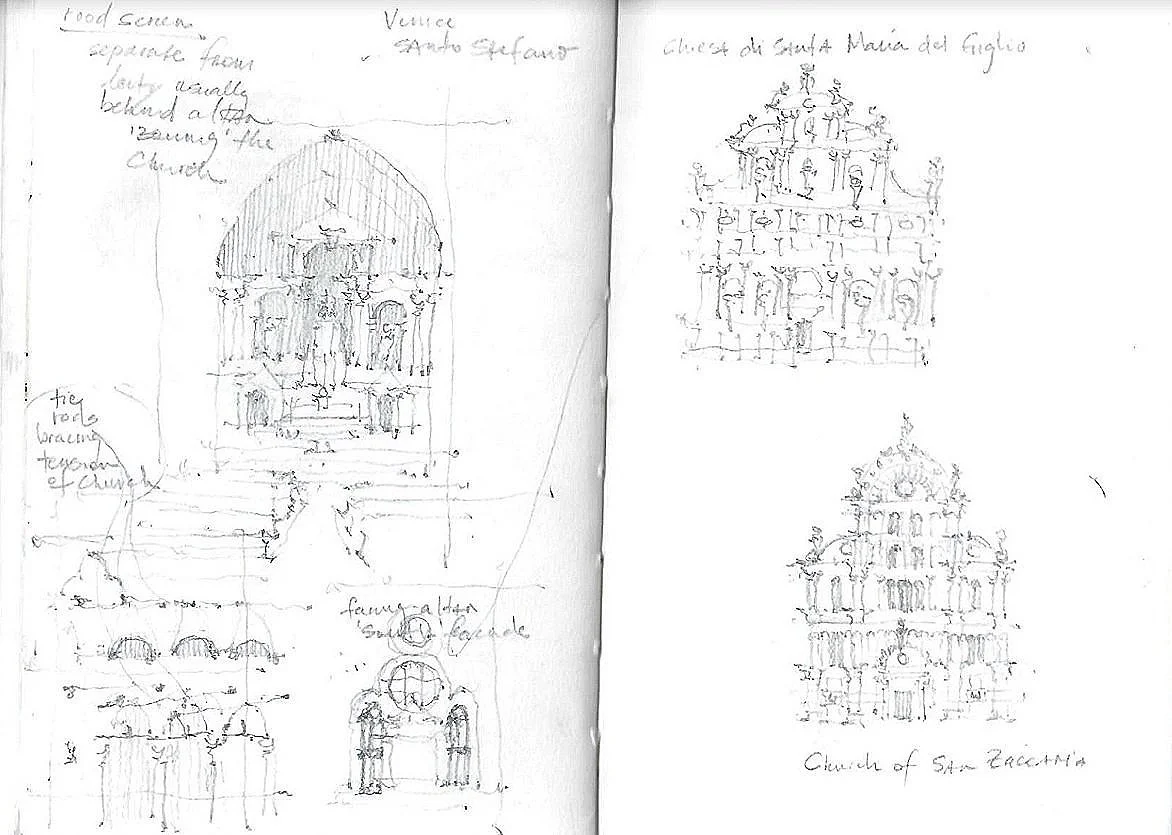 rood screen
separate from
usually
behind altar
'zoning' the
Church.
Venice
Santo Stefano
tie
rods
bracing
tension
of Church
facing altar
'South' facade
Chiesa di Santa Maria del Giglio
Church of San Zaccaria